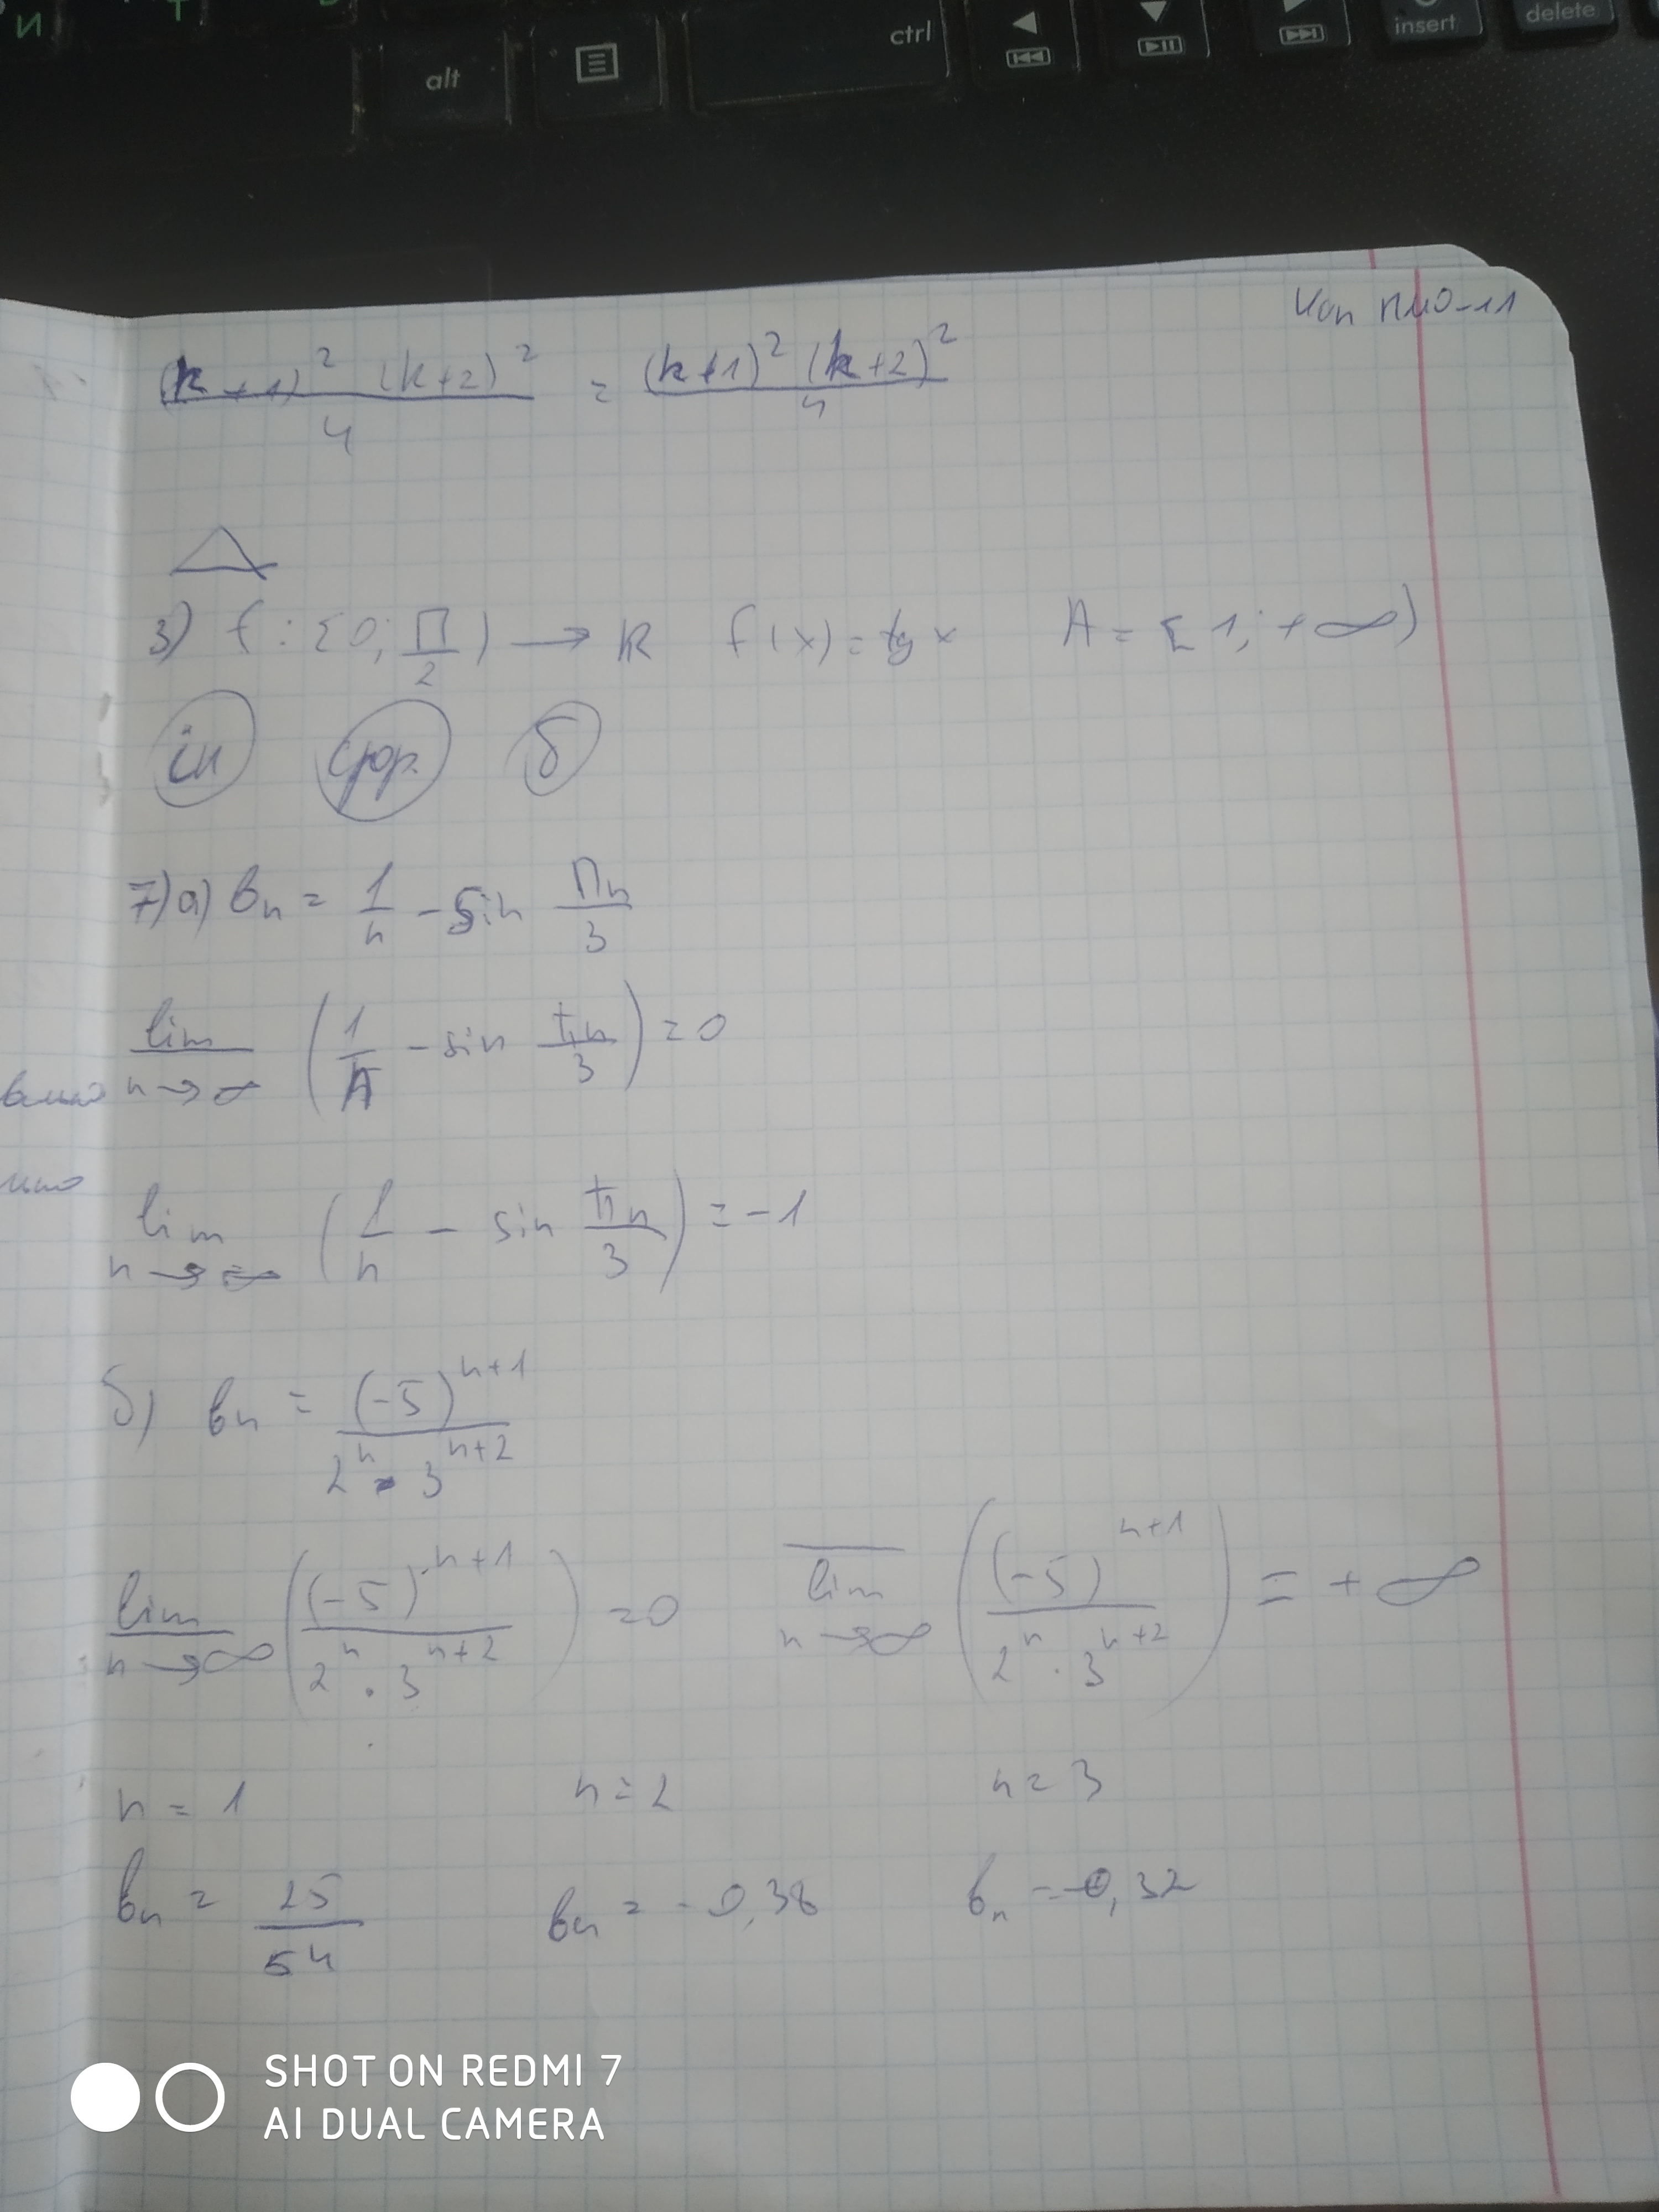 И Т
alt ctrl insert delete
(k+1)² (k+2)² / 4 = (k+1)² (k+2)² / 4
3) f : [0; П/2) → R f(x) = tg x A = [1; +∞)
in сюр. б
7) а) bₙ = 1/n - sin Пn/3
lim n→∞ (1/n - sin πn/3) = 0
lim n→∞ (1/n - sin πn/3) = -1
б) bₙ = (-5)ⁿ⁺¹ / 2ⁿ · 3ⁿ⁺²
lim n→∞ ((-5)ⁿ⁺¹ / 2ⁿ · 3ⁿ⁺²) = 0 lim n→∞ ((-5)ⁿ⁺¹ / 2ⁿ · 3ⁿ⁺²) = +∞
n = 1 n = 2 n = 3
bₙ = 25/54 bₙ = -0,38 bₙ = -0,32
SHOT ON REDMI 7
AI DUAL CAMERA